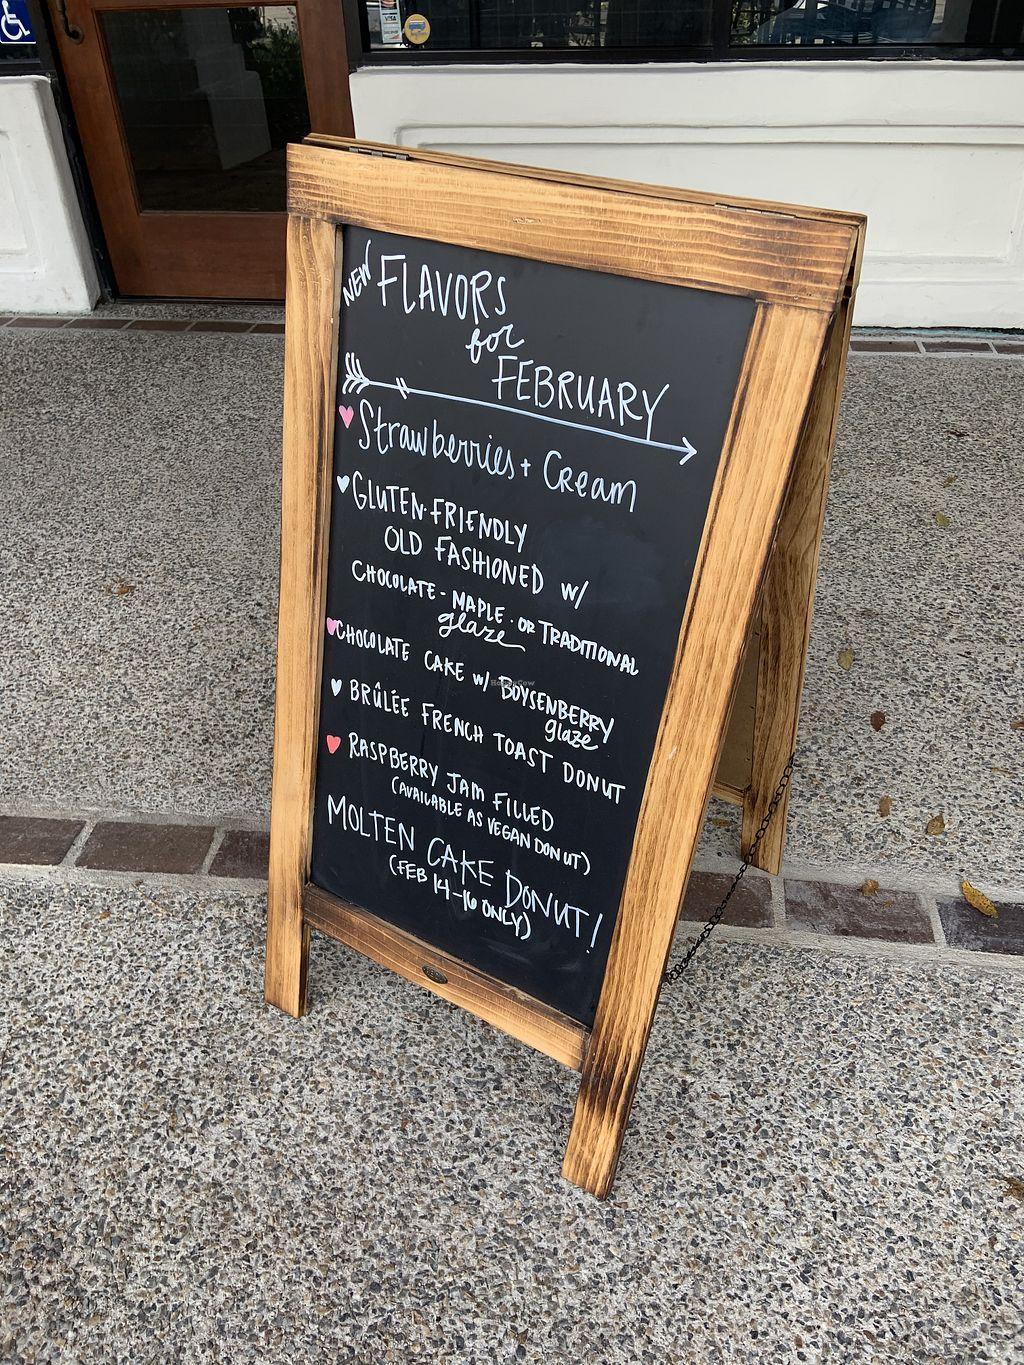 NEW FLAVORS
for
FEBRUARY
Strawberries + Cream
GLUTEN-FRIENDLY
OLD FASHIONED w/
CHOCOLATE - MAPLE - OR TRADITIONAL
glaze
CHOCOLATE CAKE w/ BOYSENBERRY
glaze
BRÛLÉE FRENCH TOAST DONUT
RASPBERRY JAM FILLED
(AVAILABLE AS VEGAN DONUT)
MOLTEN CAKE DONUT!
(FEB 14-16 ONLY)
VISA
HappyCow